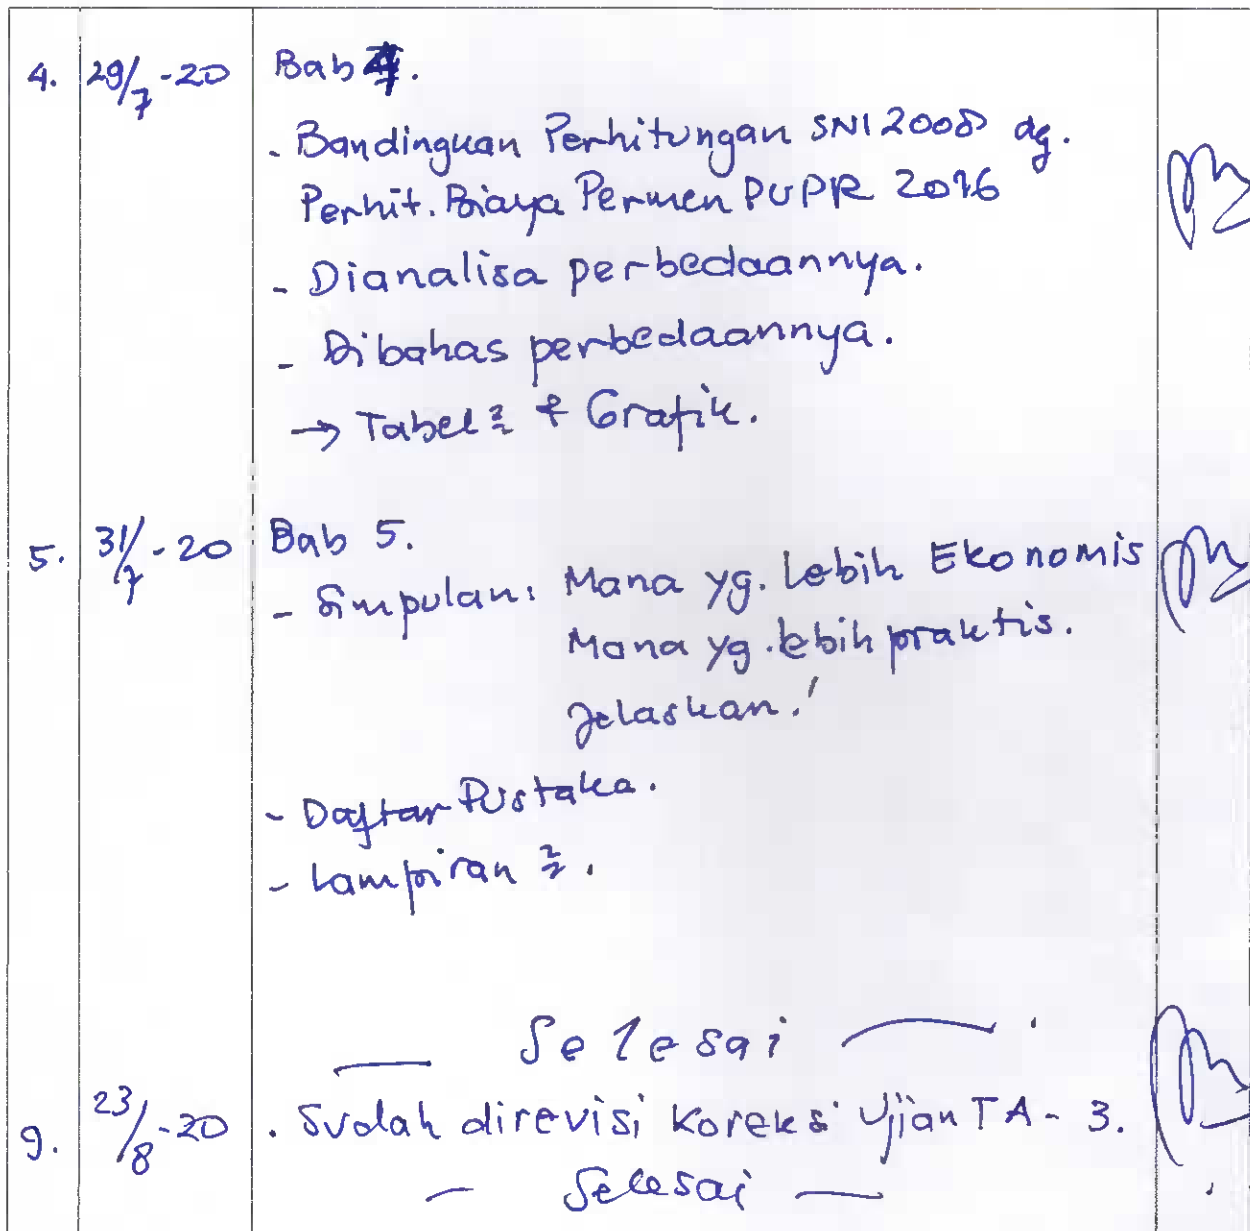 4. 29/7-20 Bab 4.
- Bandingkan Perhitungan SNI 2008 dg.
Perhit. Biaya Permen PUPR 2016
- Dianalisa perbedaannya.
- Dibahas perbedaannya.
→ Tabel2 & Grafik.
5. 31/7-20 Bab 5.
- Simpulan: Mana yg. lebih Ekonomis
Mana yg. lebih praktis.
Jelaskan!
- Daftar Pustaka.
- Lampiran2.
— Selesai —
9. 23/8-20 . Sudah direvisi Koreksi Ujian TA - 3.
- Selesai -